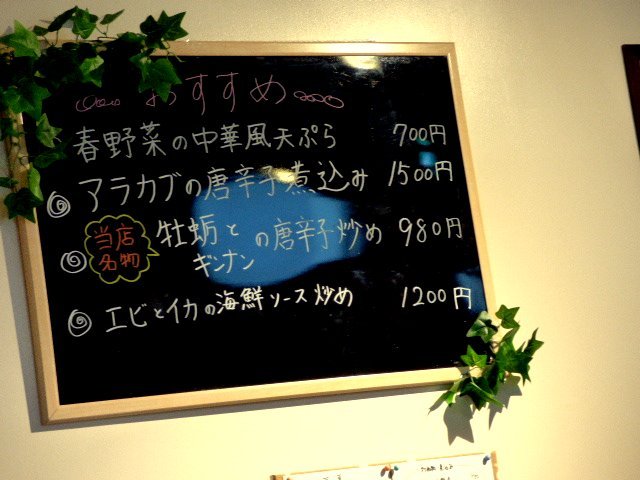 おすすめ
春野菜の中華風天ぷら 700円
◎ アラカブの唐辛子煮込み 1500円
◎ 当店名物 牡蛎とギンナンの唐辛子炒め 980円
◎ エビとイカの海鮮ソース炒め 1200円